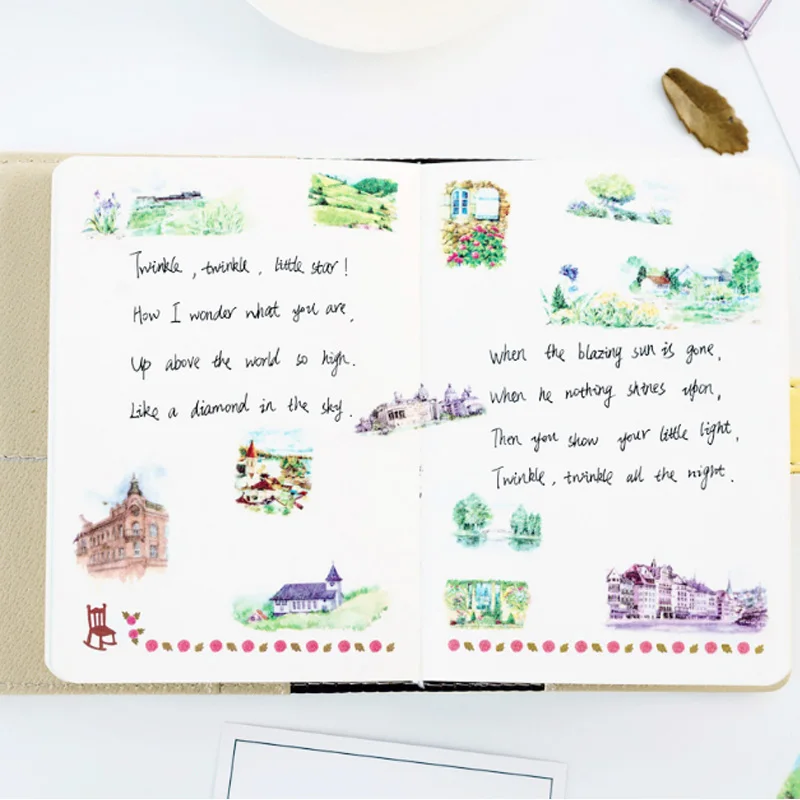 Twinkle, twinkle, little star!
How I wonder what you are,
Up above the world so high.
Like a diamond in the sky.
When the blazing sun is gone,
When he nothing shines upon,
Then you show your little light,
Twinkle, twinkle all the night.